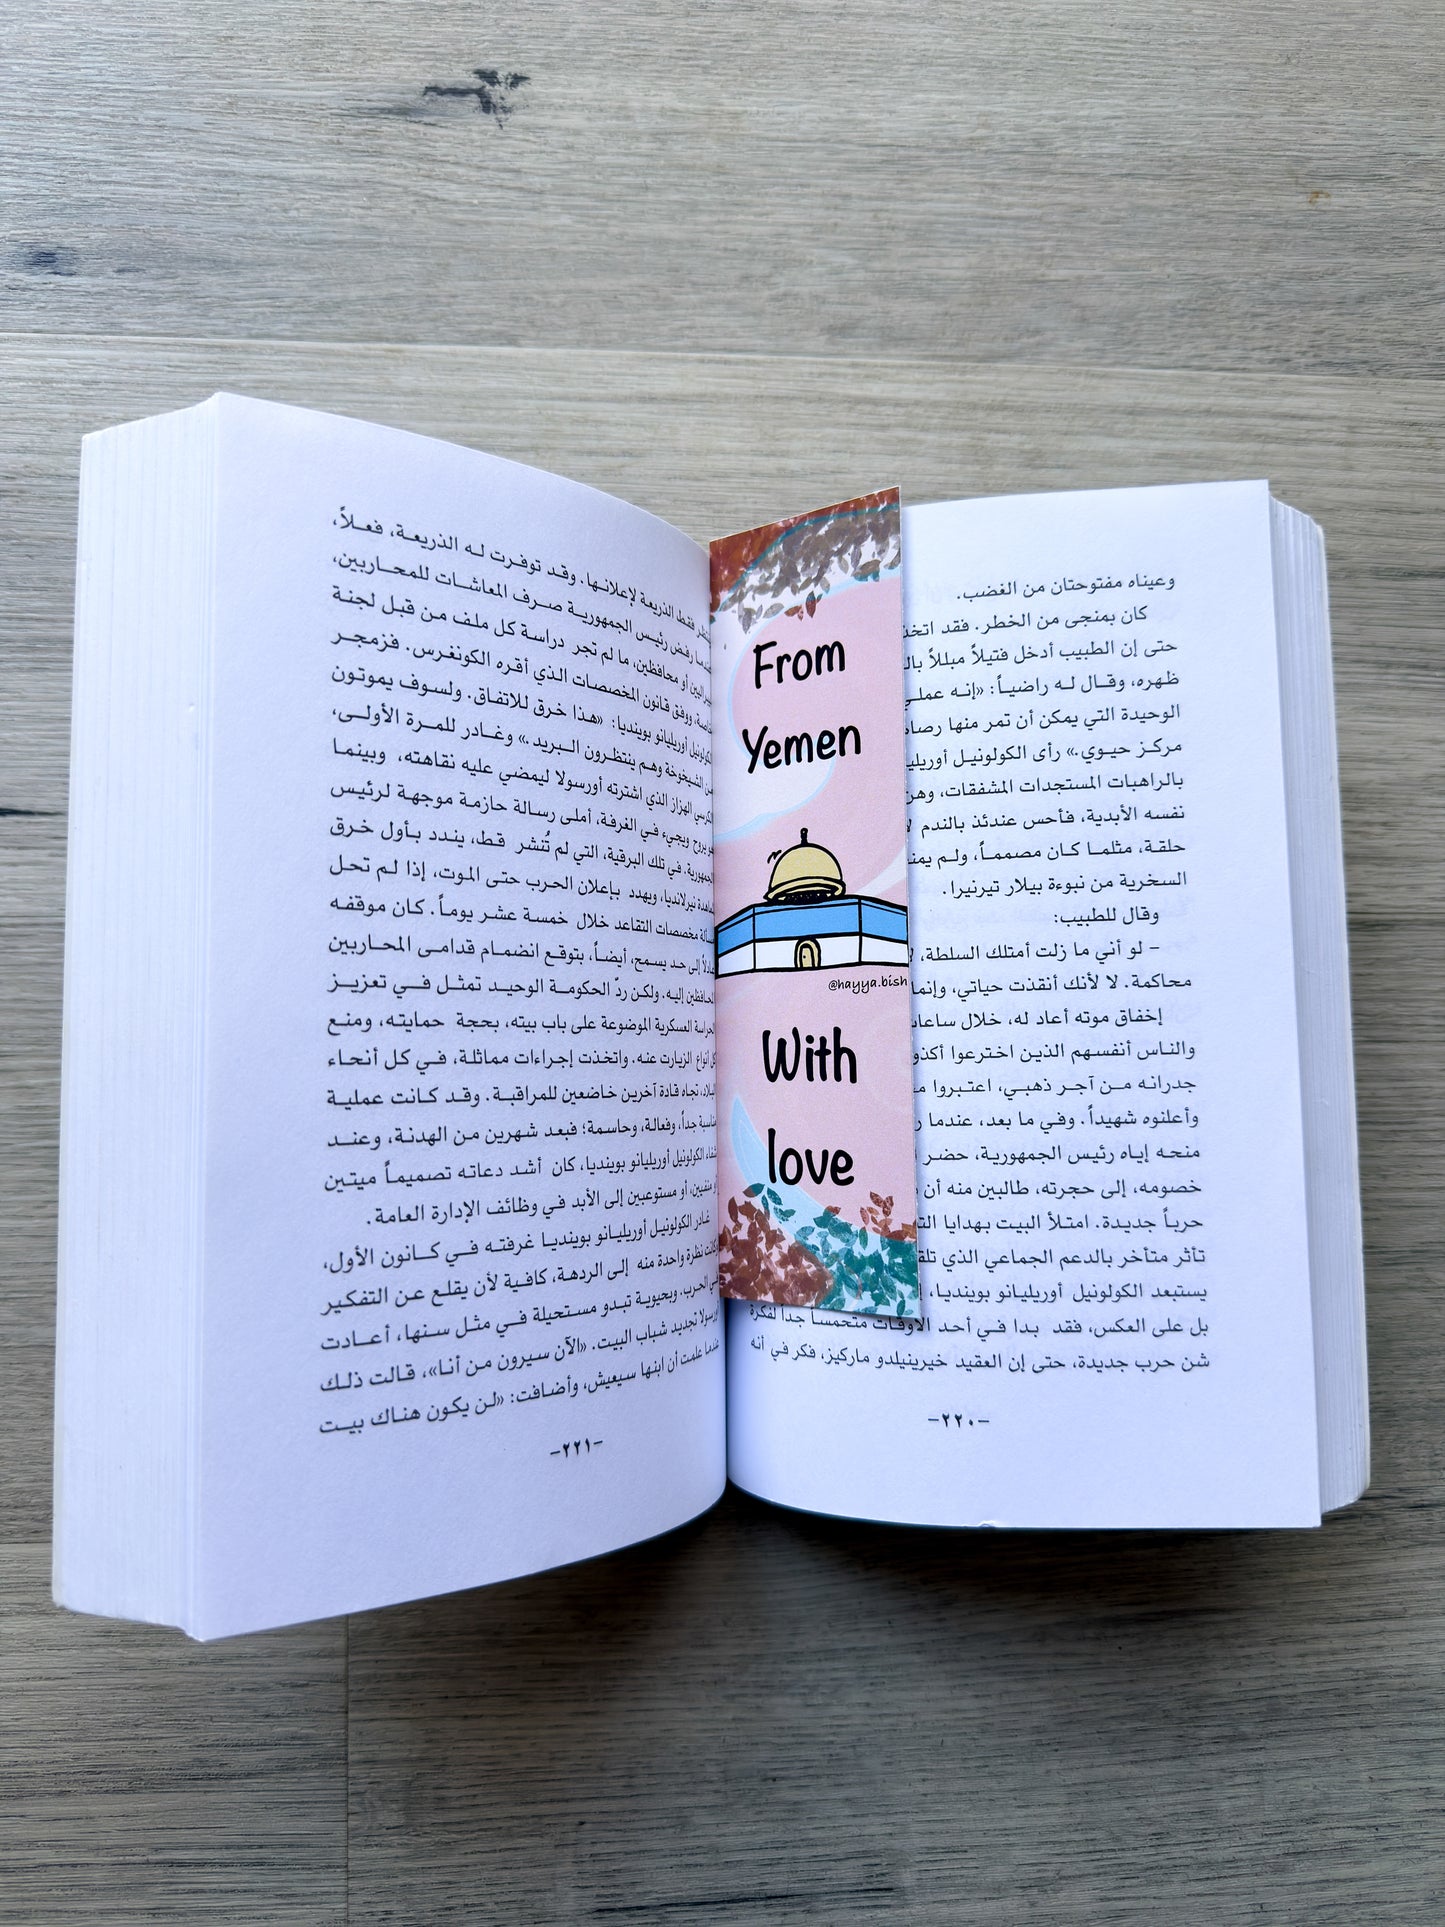 وعيناه مفتوحتان من الغضب.
كان بمنجى من الخطر. فقد اتخذ
حتى إن الطبيب أدخل فتيلاً مبللاً
ظهره، وقال له راضياً: «إنه
الوحيدة التي يمكن أن تمر منها
مركز حيوي.» رأى الكولونيل
بالراهبات المستجدات المشفقات،
نفسه الأبدية، فأحس عندئذ بالندم
حلقة، مثلما كان مصمماً، ولم
السخرية من نبوءة بيلار تيرنيرا.
وقال للطبيب:
– لو أني ما زلت أمتلك السلطة،
محاكمة. لا لأنك أنقذت حياتي، وإنما
إخفاق موته أعاد له، خلال
والناس أنفسهم الذين اخترعوا
جدرانه من آجر ذهبي، اعتبروا
وأعلنوه شهيداً. وفي ما بعد، عندما
منحه إياه رئيس الجمهورية، حضر
خصومه، إلى حجرته، طالبين منه أن
حرباً جديدة. امتلأ البيت بهدايا
تأثر متأخر بالدعم الجماعي الذي
يستبعد الكولونيل أوريليانو بوينديا،
بل على العكس، فقد بدا في أحد الأوقات متحمساً جداً لفكرة
شن حرب جديدة، حتى إن العقيد خيرينيلدو ماركيز، فكر في أنه
–٢٢٠–
From
Yemen
@hayya.bish
With
love
فقط الذريعة لإعلانها. وقد توفرت له الذريعة، فعلاً،
رفض رئيس الجمهورية صرف المعاشات للمحاربين،
أو محافظين، ما لم تجر دراسة كل ملف من قبل لجنة
ووفق قانون المخصصات الذي أقره الكونغرس. فزمجر
الكولونيل أوريليانو بوينديا: «هذا خرق للاتفاق. ولسوف يموتون
من الشيخوخة وهم ينتظرون البريد.» وغادر للمرة الأولى،
الكرسي الهزاز الذي اشترته أورسولا ليمضي عليه نقاهته، وبينما
هو يروح ويجيء في الغرفة، أملى رسالة حازمة موجهة لرئيس
الجمهورية. في تلك البرقية، التي لم تُنشر قط، يندد بأول خرق
نيرلانديا، ويهدد بإعلان الحرب حتى الموت، إذا لم تحل
مخصصات التقاعد خلال خمسة عشر يوماً. كان موقفه
إلى حد يسمح، أيضاً، بتوقع انضمام قدامى المحاربين
المحافظين إليه. ولكن ردّ الحكومة الوحيد تمثل في تعزيز
الحراسة العسكرية الموضوعة على باب بيته، بحجة حمايته، ومنع
كل أنواع الزيارت عنه. واتخذت إجراءات مماثلة، في كل أنحاء
البلاد، تجاه قادة آخرين خاضعين للمراقبة. وقد كانت عملية
مناسبة جداً، وفعالة، وحاسمة؛ فبعد شهرين من الهدنة، وعند
شفاء الكولونيل أوريليانو بوينديا، كان أشد دعاته تصميماً ميتين
أو منفيين، أو مستوعبين إلى الأبد في وظائف الإدارة العامة.
غادر الكولونيل أوريليانو بوينديا غرفته في كانون الأول،
وكانت نظرة واحدة منه إلى الردهة، كافية لأن يقلع عن التفكير
في الحرب. وبحيوية تبدو مستحيلة في مثل سنها، أعادت
أورسولا تجديد شباب البيت. «الآن سيرون من أنا»، قالت ذلك
عندما علمت أن ابنها سيعيش، وأضافت: «لن يكون هناك بيت
–٢٢١–